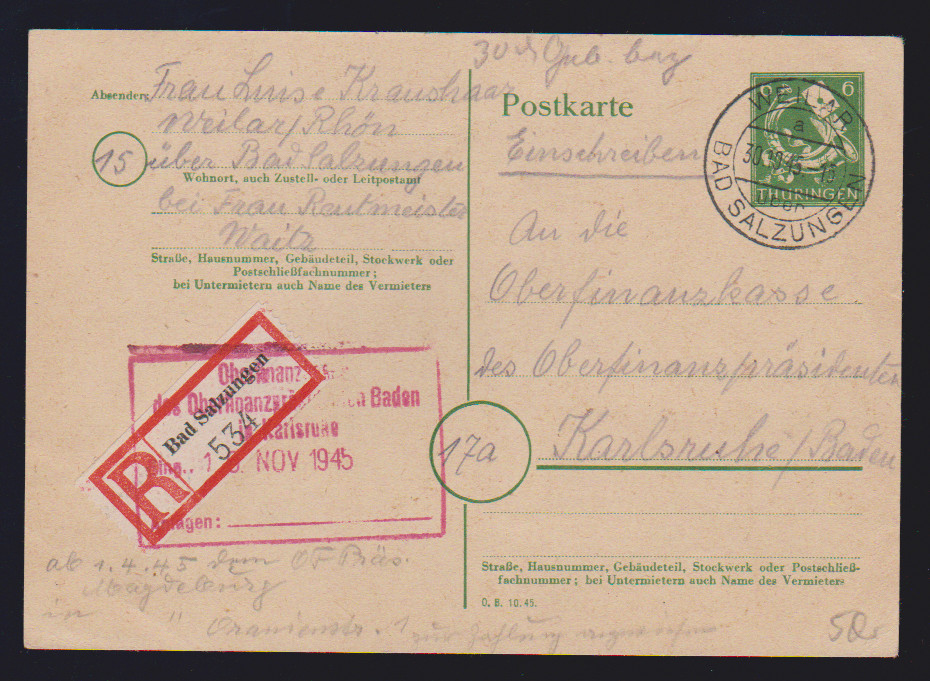 30 Geb. bez
Absender: Frau Luise Kraushaar
Weilar/Rhön
15 über Bad Salzungen
Wohnort, auch Zustell- oder Leitpostamt
bei Frau Rentmeister
Waitz
Straße, Hausnummer, Gebäudeteil, Stockwerk oder
Postschließfachnummer;
bei Untermietern auch Name des Vermieters
Postkarte
6
THÜRINGEN
WEILAR
a
30.10.45
BAD SALZUNGEN
Einschreiben
An die
Oberfinanzkasse
des Oberfinanzpräsidenten
17a Karlsruhe/Baden
Straße, Hausnummer, Gebäudeteil, Stockwerk oder Postschließ-
fachnummer; bei Untermietern auch Name des Vermieters
D. B. 10. 45.
R
Bad Salzungen
534
Baden
Karlsruhe
NOV 1945
ab 1.4.45 dem OFPräs.
Magdeburg
in " Oranienstr. 1
zur Zahlung angewiesen